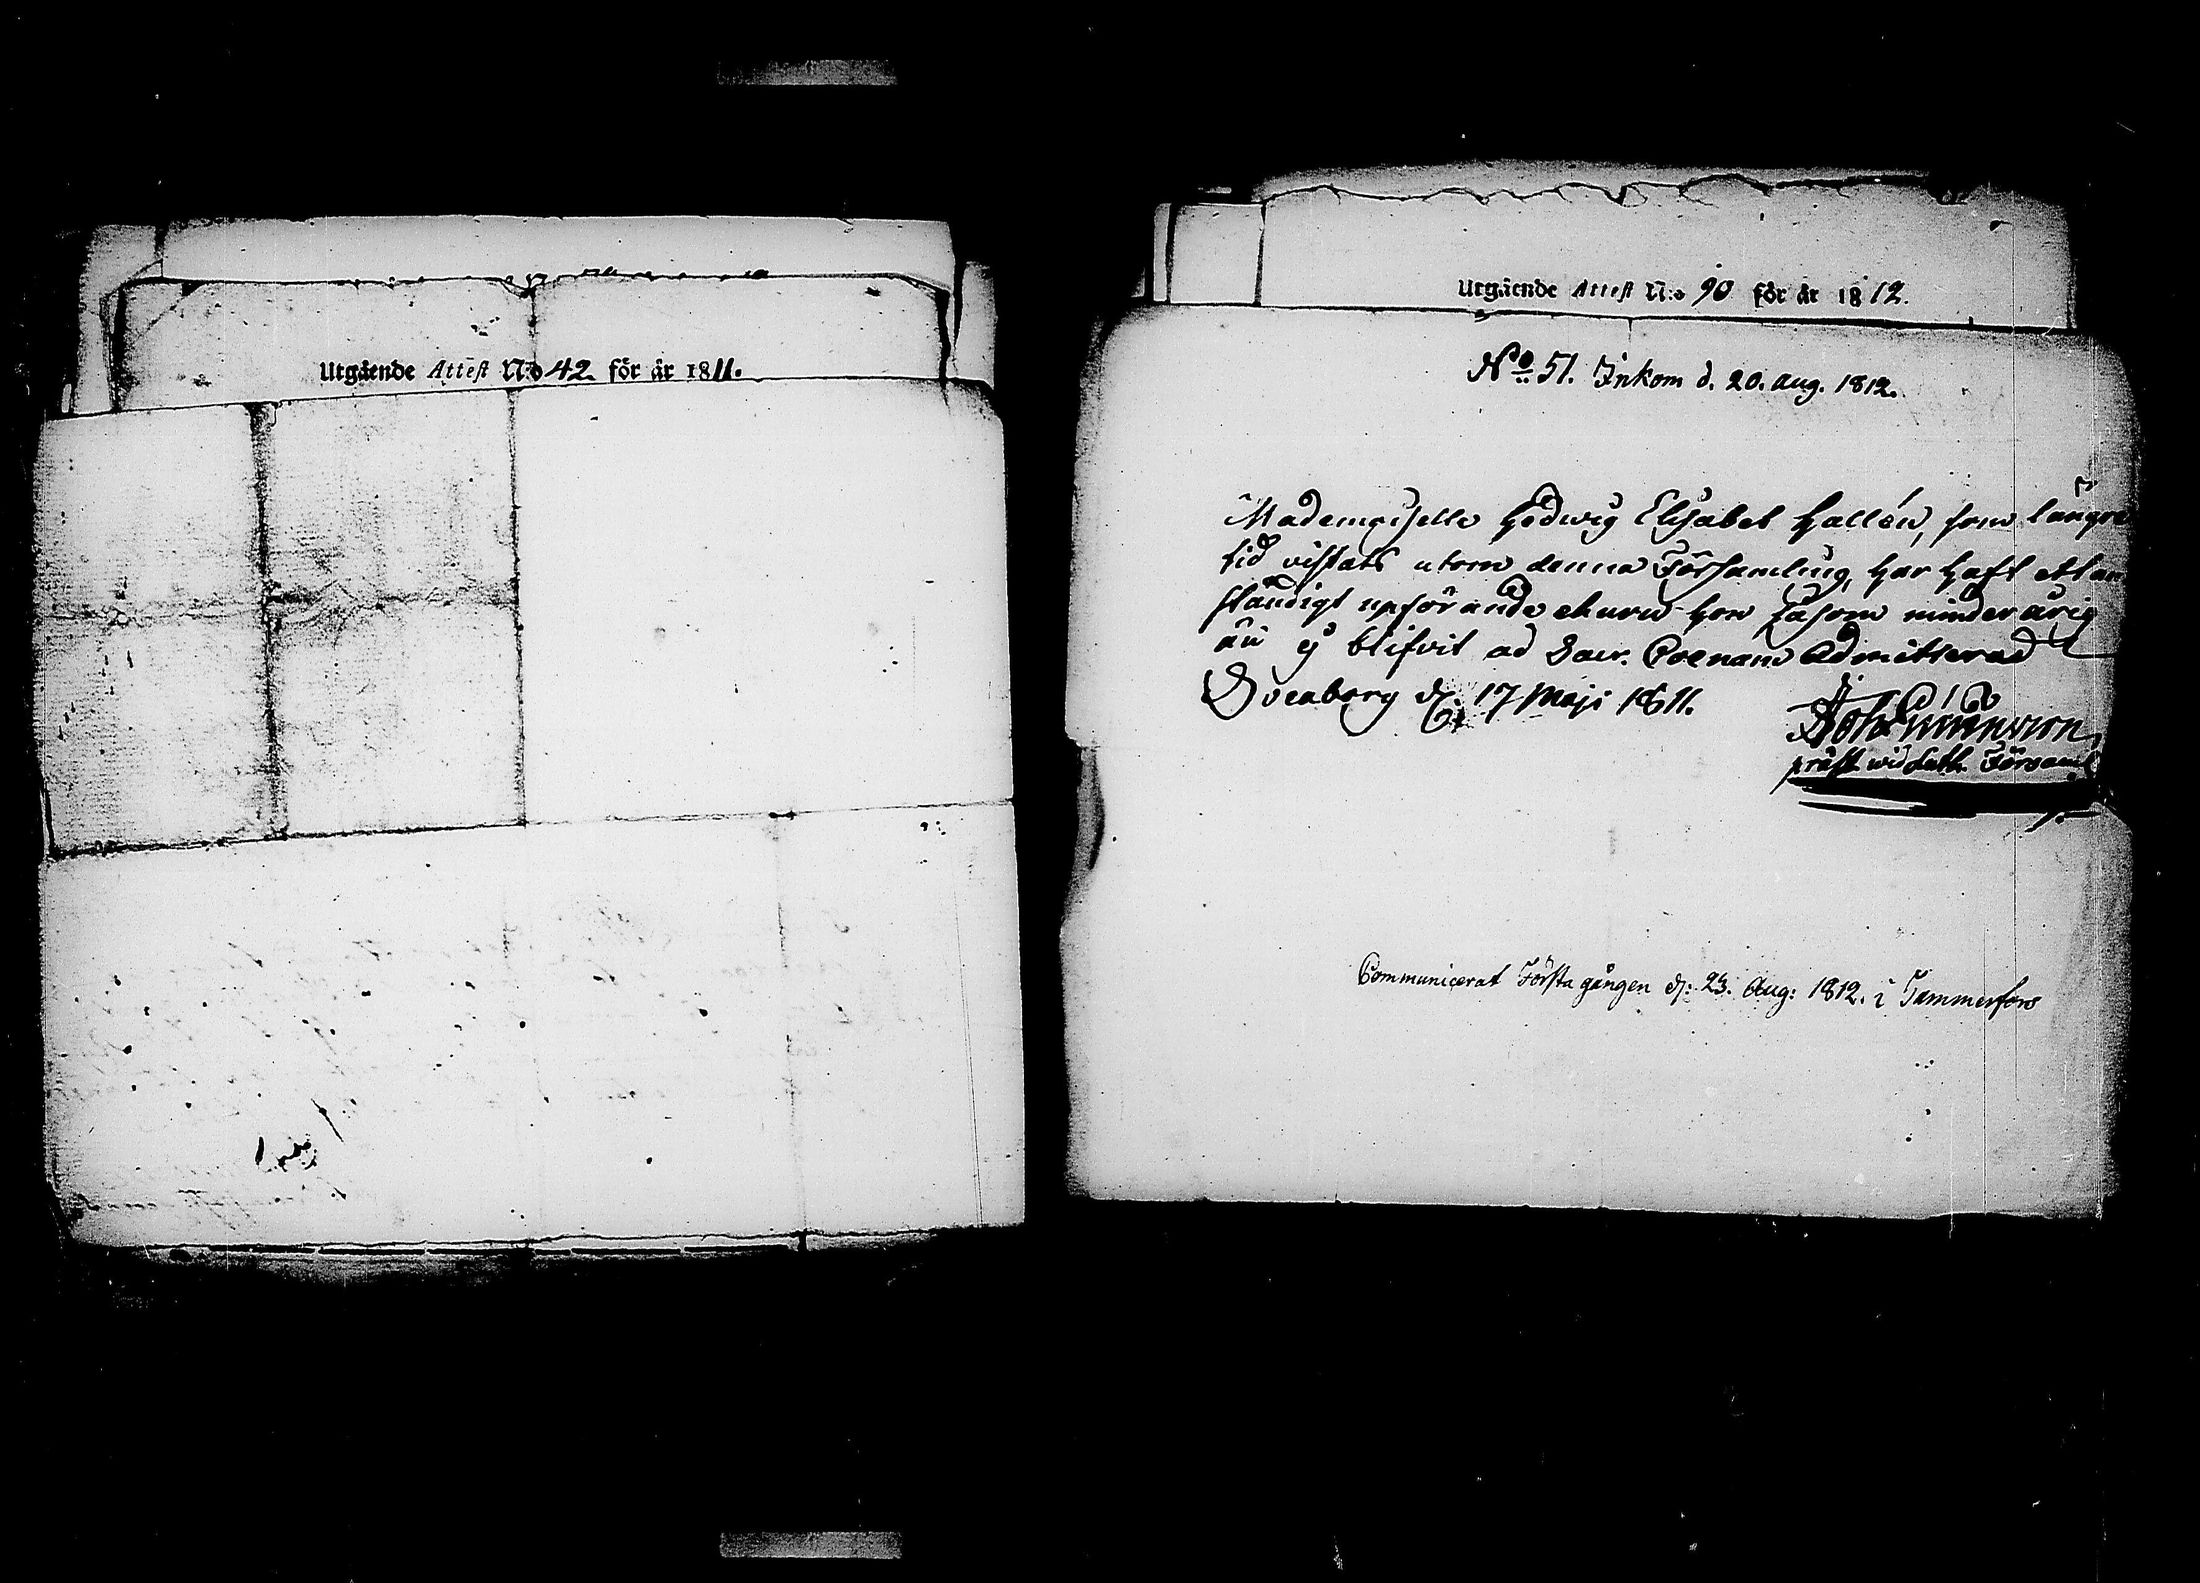 Utgående Attest N:o 42. för år 1811.
Utgående Attest N:o 90 för år 1812.
N:o 51. Inkom d. 20. aug. 1812.
Mademoiselle Hedwig Elisabet Hallén, som längre
tid vistats utom denna Församling, har haft ett an
ständigt upförande ehuru hon såsom minderårig
än ej blifvit ad Sacr. Coenam Admitterad
Sveaborg d. 17 Maji 1811.
präst wid Luth. Församl.
Communicerat Första gången d: 23. Aug: 1812. i Tammerfors